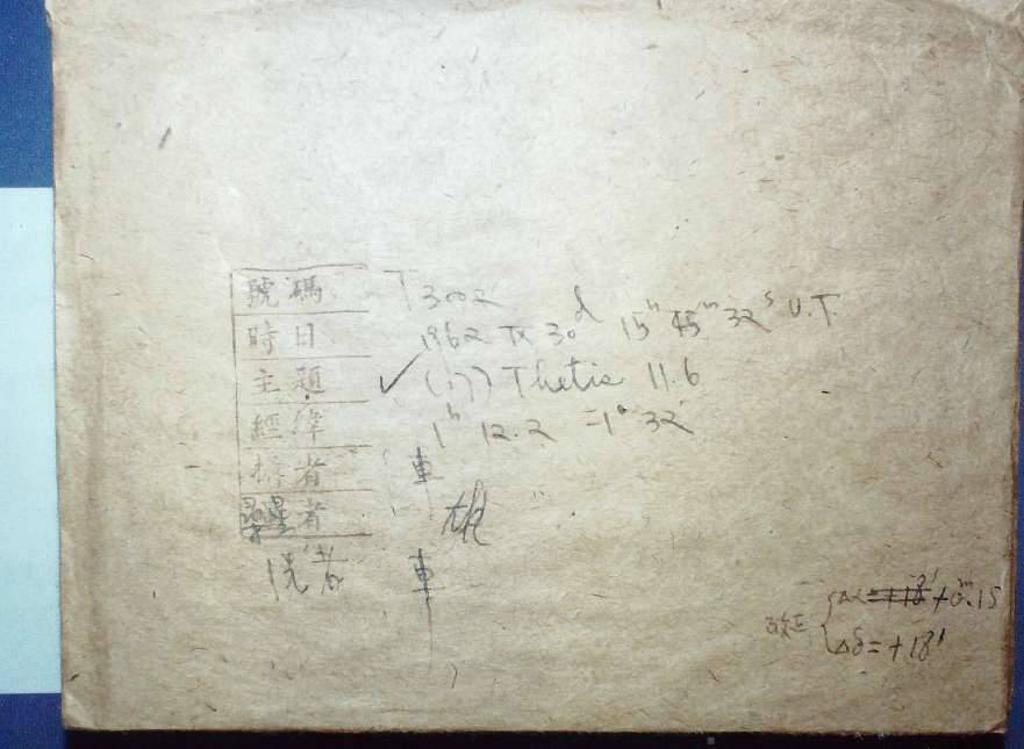 號碼 T3002
時日 1962 IX 30ᵈ 15ʰ 45ᵐ 32ˢ U.T.
主題 ✓ (17) Thetis 11.6
經緯 1ʰ 12.2 -1° 32'
者 車
者
洗者 車
改正 { Δα = +18' +0ᵐ.15
Δδ = +18'